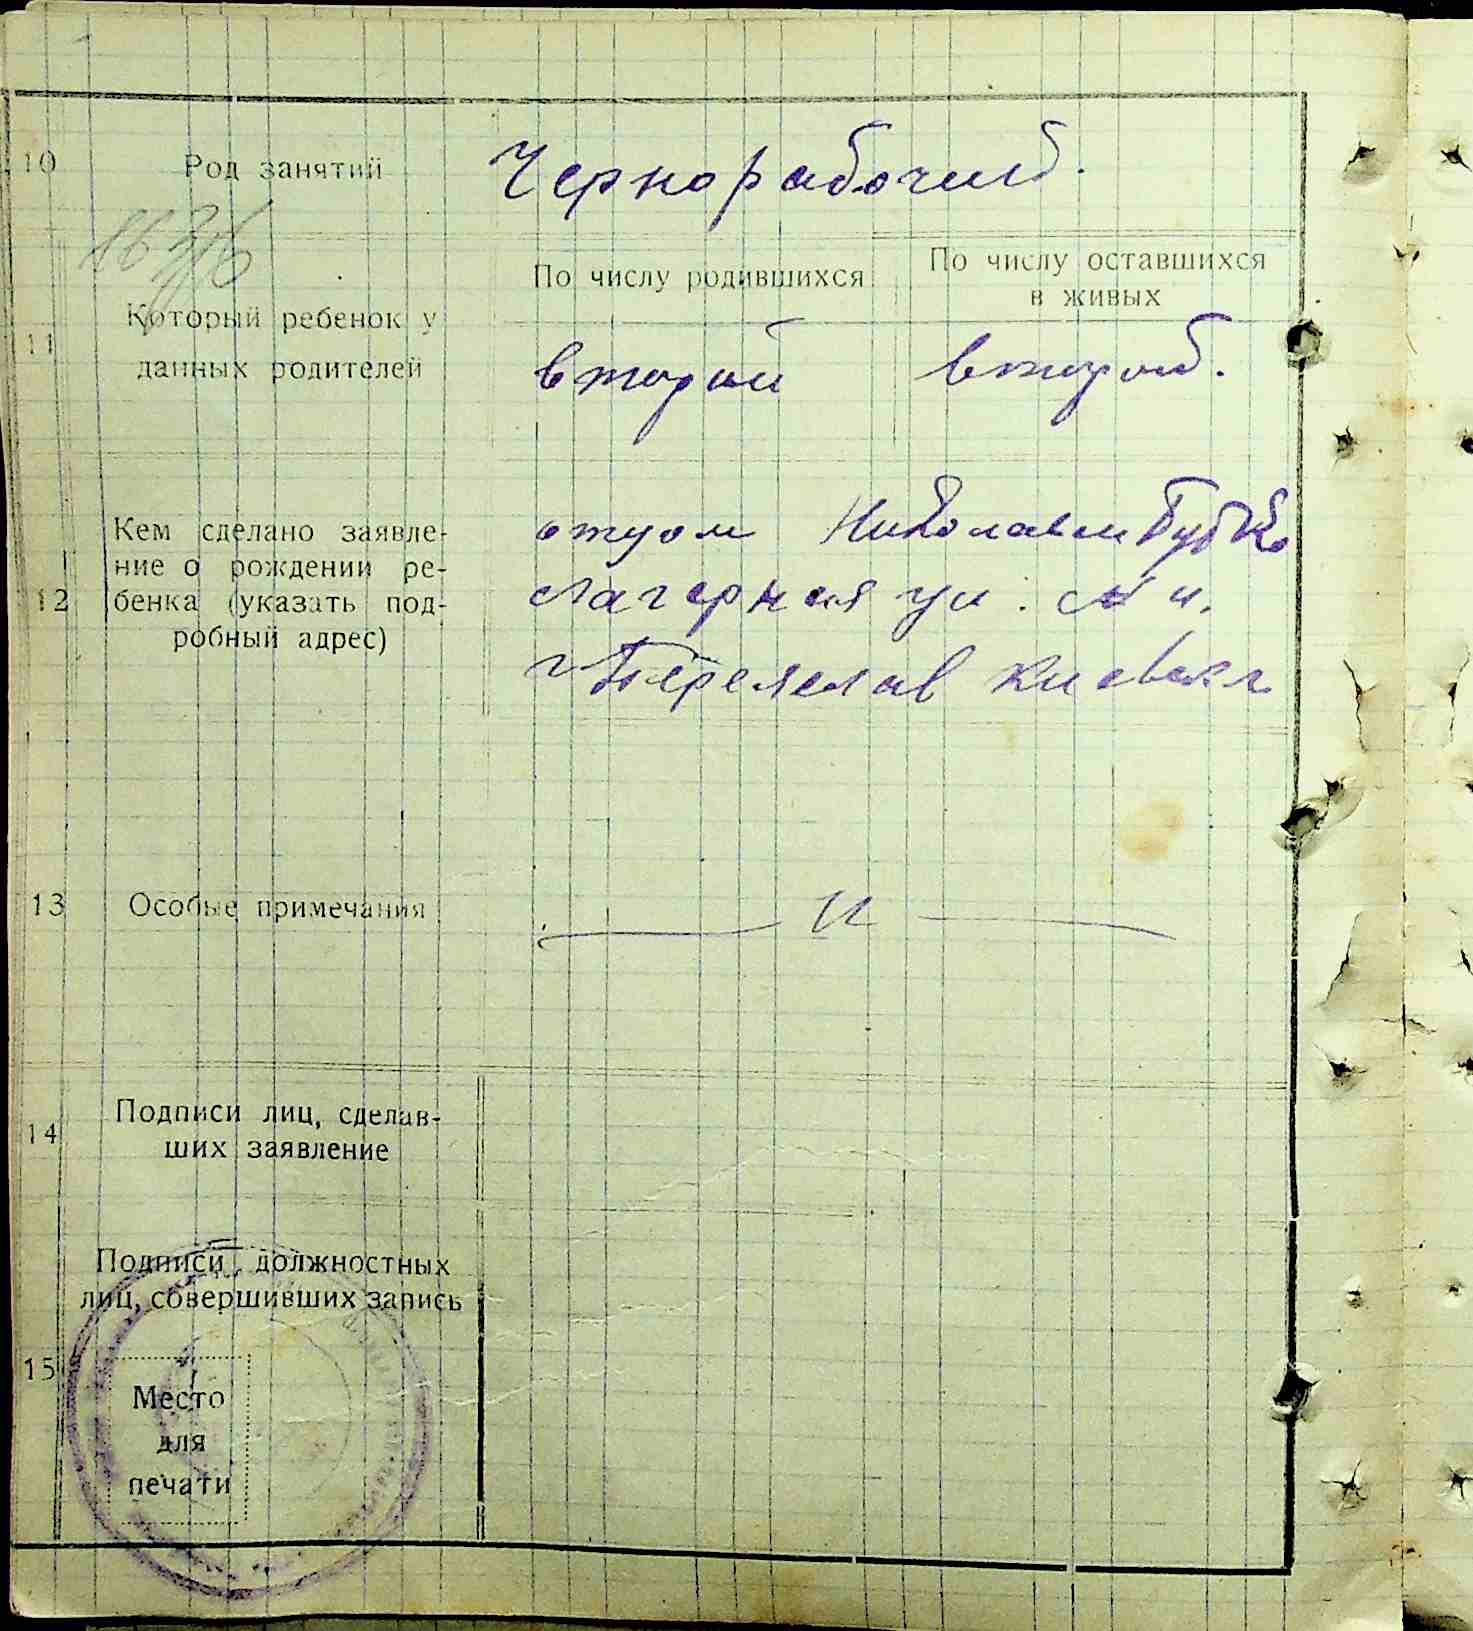 10
Род занятий
Чернорабочий.
По числу родившихся
По числу оставшихся
в живых
11
Который ребенок у
данных родителей
второй
второй.
12
Кем сделано заявле-
ние о рождении ре-
бенка (указать под-
робный адрес)
отцом Николаем Бубко
Лагерная ул.
г Переяслав Киевск
13
Особые примечания
14
Подписи лиц, сделав-
ших заявление
15
Подписи должностных
лиц, совершивших запись
Место
для
печати